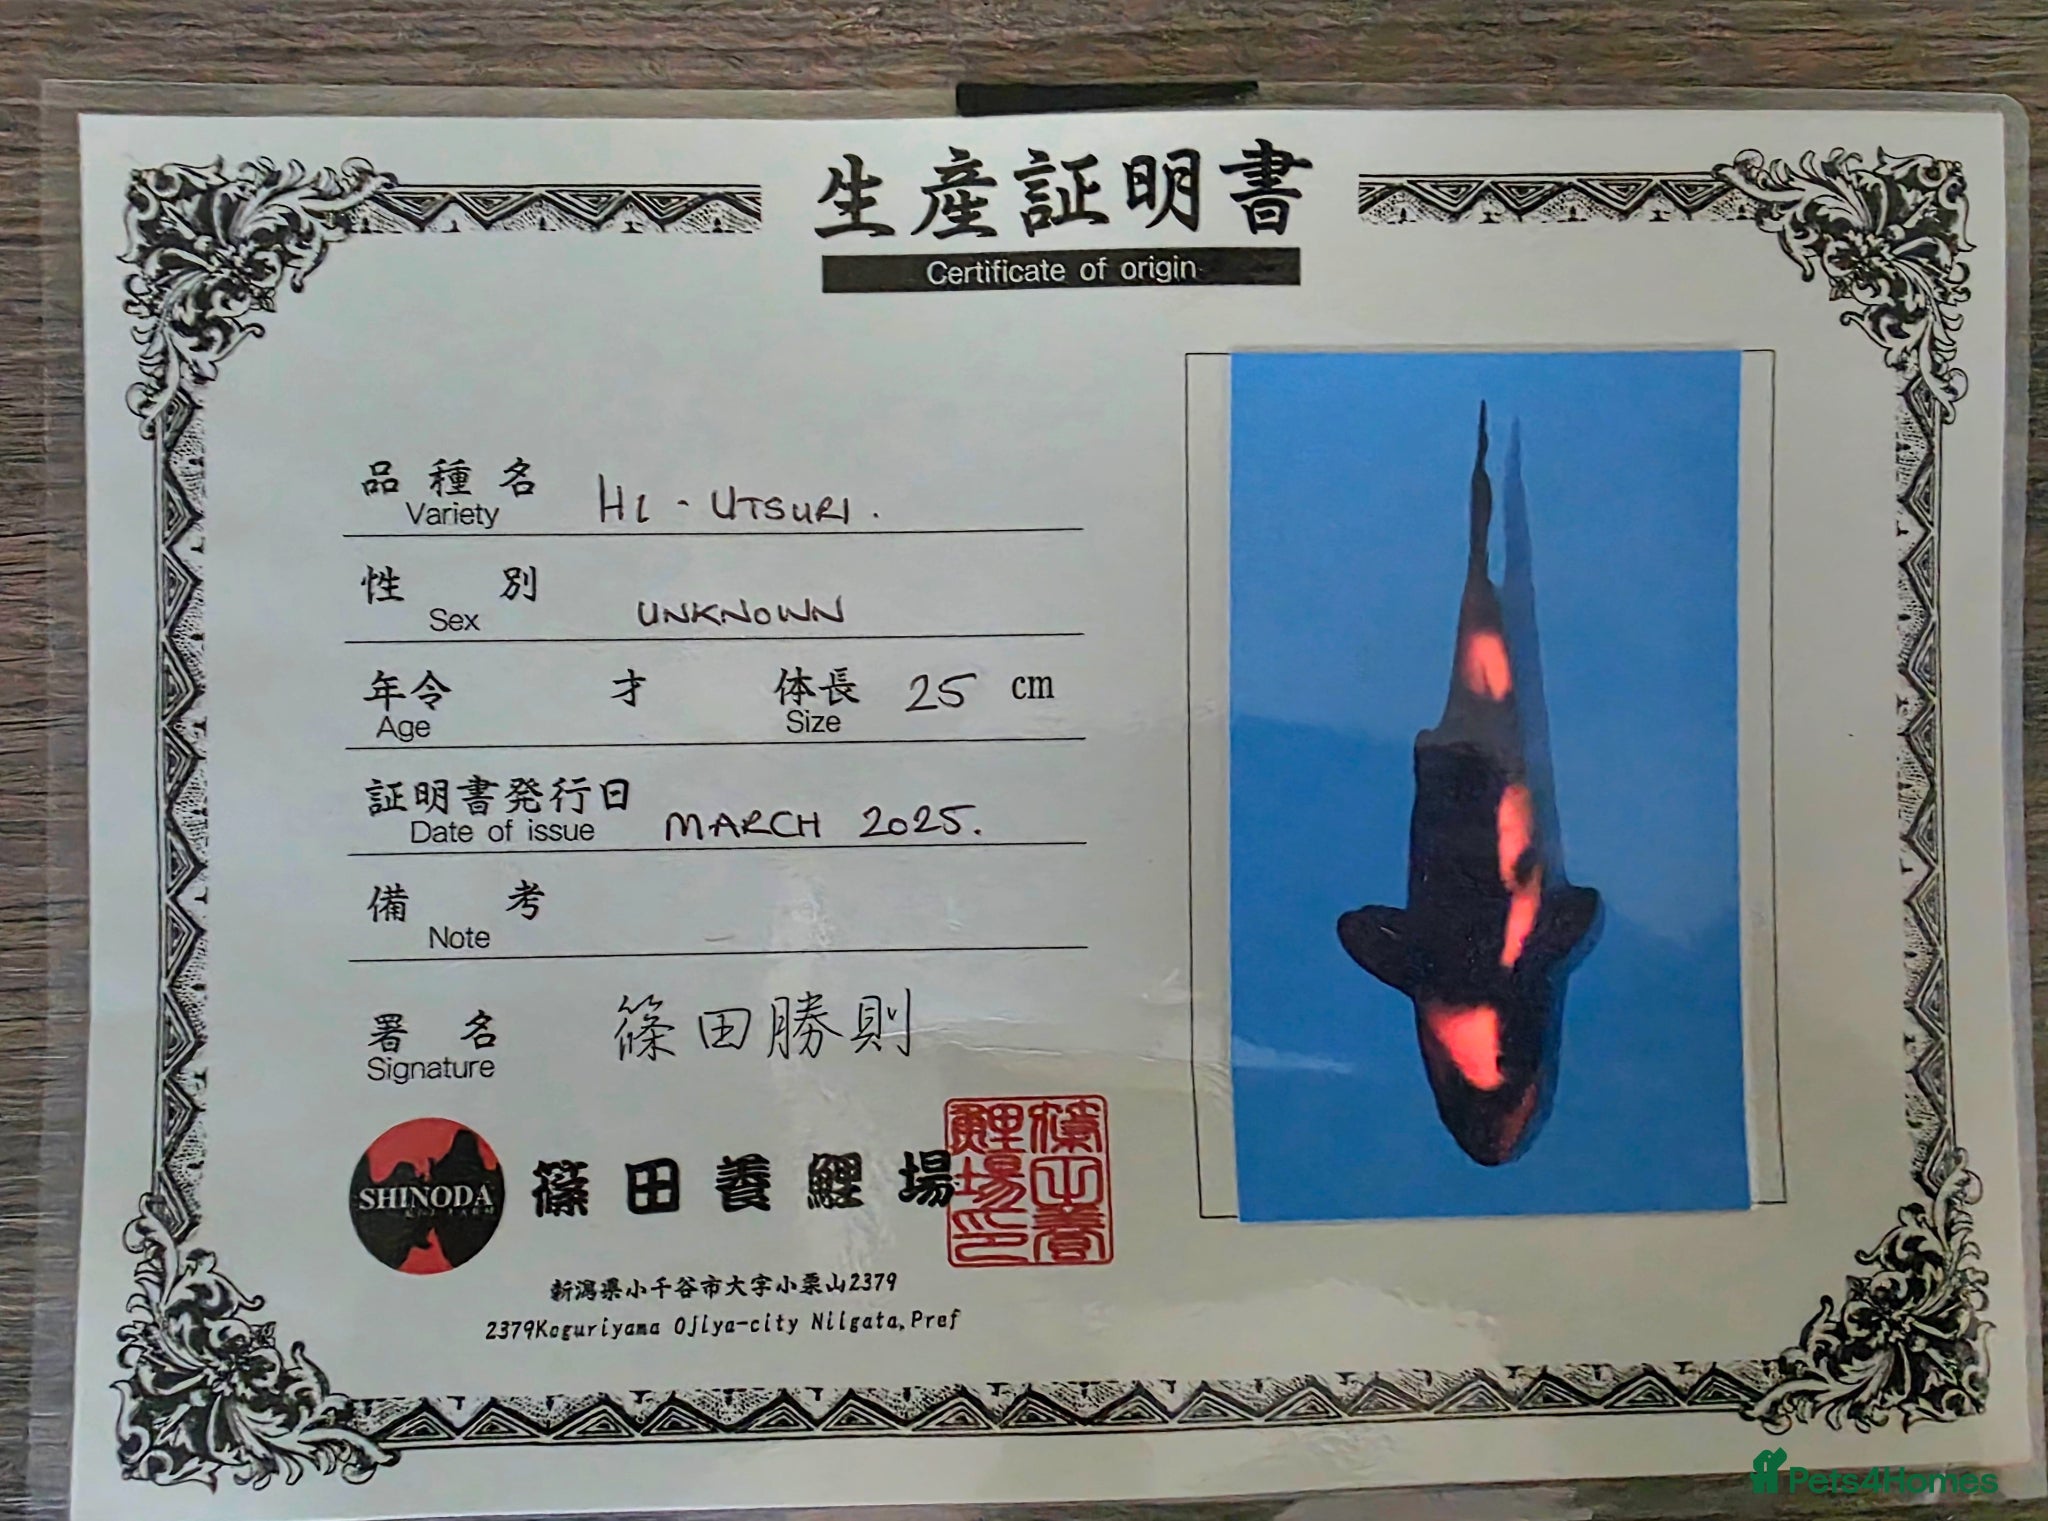 生産証明書
Certificate of origin
品種名 Hi - UTSURI.
Variety
性別 UNKNOWN
Sex
年令 才 体長 25 cm
Age Size
証明書発行日 MARCH 2025.
Date of issue
備考
Note
署名 篠田勝則
Signature
SHINODA
KOI FARM
篠田養鯉場
篠田養鯉場印
新潟県小千谷市大字小栗山2379
2379Koguriyama Ojiya-city Niigata,Pref
Pets4Homes